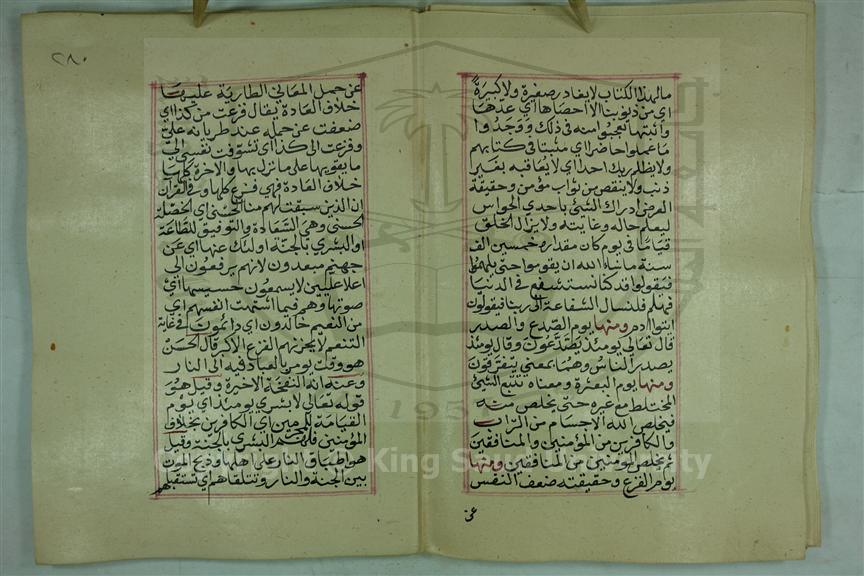 مال هذا الكتاب لا يغادر صغيرة ولا كبيرة
اي من ذنوبنا الا احصاها اي عدها
واثبتها تعجبوا منه في ذلك ووجدوا
ما عملوا حاضرا اي مثبتا في كتابهم
ولا يظلم ربك احدا اي لا يعاقبه بغير
ذنب ولا ينقص من ثواب مؤمن وحقيقة
العرض ادراك الشئ باحدي الحواس
ليعلم حاله وغايته ولا يزال الخلق
قياما في يوم كان مقداره خمسين الف
سنة ماشاء الله ان يقوموا حتى يلهموا
فيقولوا قد كنا نستشفع في الدنيا
فهلم فلنسال الشفاعة الى ربنا فيقولون
ائتوا ادم ومنها يوم الصدع والصدر
قال تعالي يومئذ يصدعون وقال يومئذ
يصدر الناس وهما بمعني يتفرقون
ومنها يوم البعثرة ومعناه تتبع الشئ
المختلط مع غيره حتى يخلص منه
فيخلص الله الاجسام من التراب
والكافرين من المؤمنين والمنافقين
ثم يخلص المؤمنين من المنافقين ومنها
يوم الفزع وحقيقته ضعف النفس
عن
٢٨٠
عن حمل المعاني الطارية عليها
خلاف العادة يقال فزعت من كذا اي
ضعفت عن حمله عند طريانه علي
وفزعت الى كذا اي تشوفت نفسي الى
ما يقويها على ما نزل بها والاخرة كلها
خلاف العادة فهي فزع كلها وفي القرآن
ان الذين سبقت لهم منا الحسنى اي الخصلة
الحسنى وهي السعادة والتوفيق للطاعة
او البشري بالجنة اولئك عنها اي عن
جهنم مبعدون لانهم يرفعون الى
اعلا عليين لا يسمعون حسيسها اي
صوتها وهم فيما اشتهت انفسهم اي
من النعيم خالدون اي دائمون في غاية
التنعم لا يحزنهم الفزع الاكبر قال الحسن
هو وقت يومر بالعباد فيه الى النار
وعنه انه النفخة الاخيرة وقيل هو
قوله تعالي لا بشري يومئذ اي يوم
القيامة للمجرمين اي الكافرين بخلاف
المؤمنين فلهم البشري بالجنة وقيل
هو اطباق النار على اهلها
بين الجنة والنار وتتلقاهم اي تستقبلهم
King Saud University